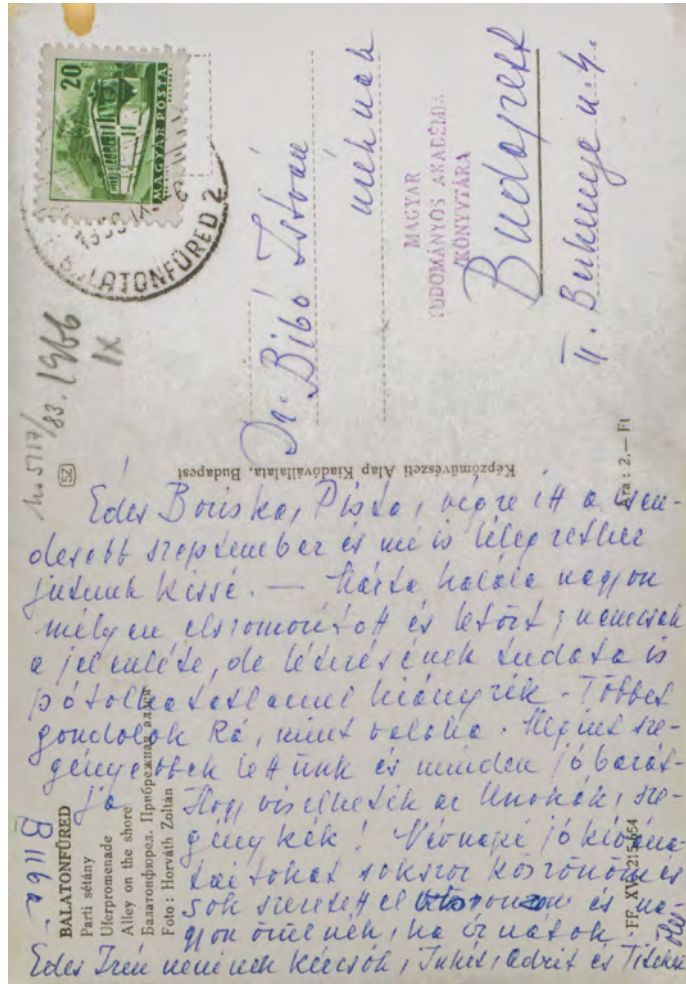 Ms 5717/83. 1966
IX
20
MAGYAR POSTA
BALATONFÜRED 2
Dr. Bibó István
úrnak
MAGYAR
TUDOMÁNYOS AKADÉMIA
KÖNYVTÁRA
Budapest
II. Berkenye u. 4.
Képzőművészeti Alap Kiadóvállalata, Budapest
SZ
Ára: 2,— Ft
Édes Boriska, Pista, végre itt a csen-
desebb szeptember és mi is lélegzethez
jutunk kissé. — Márta halála nagyon
mélyen elszomorított és letört; nemcsak
a jelenléte, de létezésének tudata is
pótolhatatlanul hiányzik. Többet
gondolok Rá, mint valaha. Megint sze-
gényebbek lettünk és minden jóbarát-
ja. Hogy viselhetik az Unokák, sze-
génykék! Névnapi jókívánsá-
taitokat sokszor köszönöm és
sok szeretettel és na-
gyon örülnék, ha írnátok.
Édes Irén néninek kézcsók, Titeket
BALATONFÜRED
Parti sétány
Uferpromenade
Alley on the shore
Балатонфюред. Прибрежная аллея
Foto: Horváth Zoltán
FF. XVI/215-654